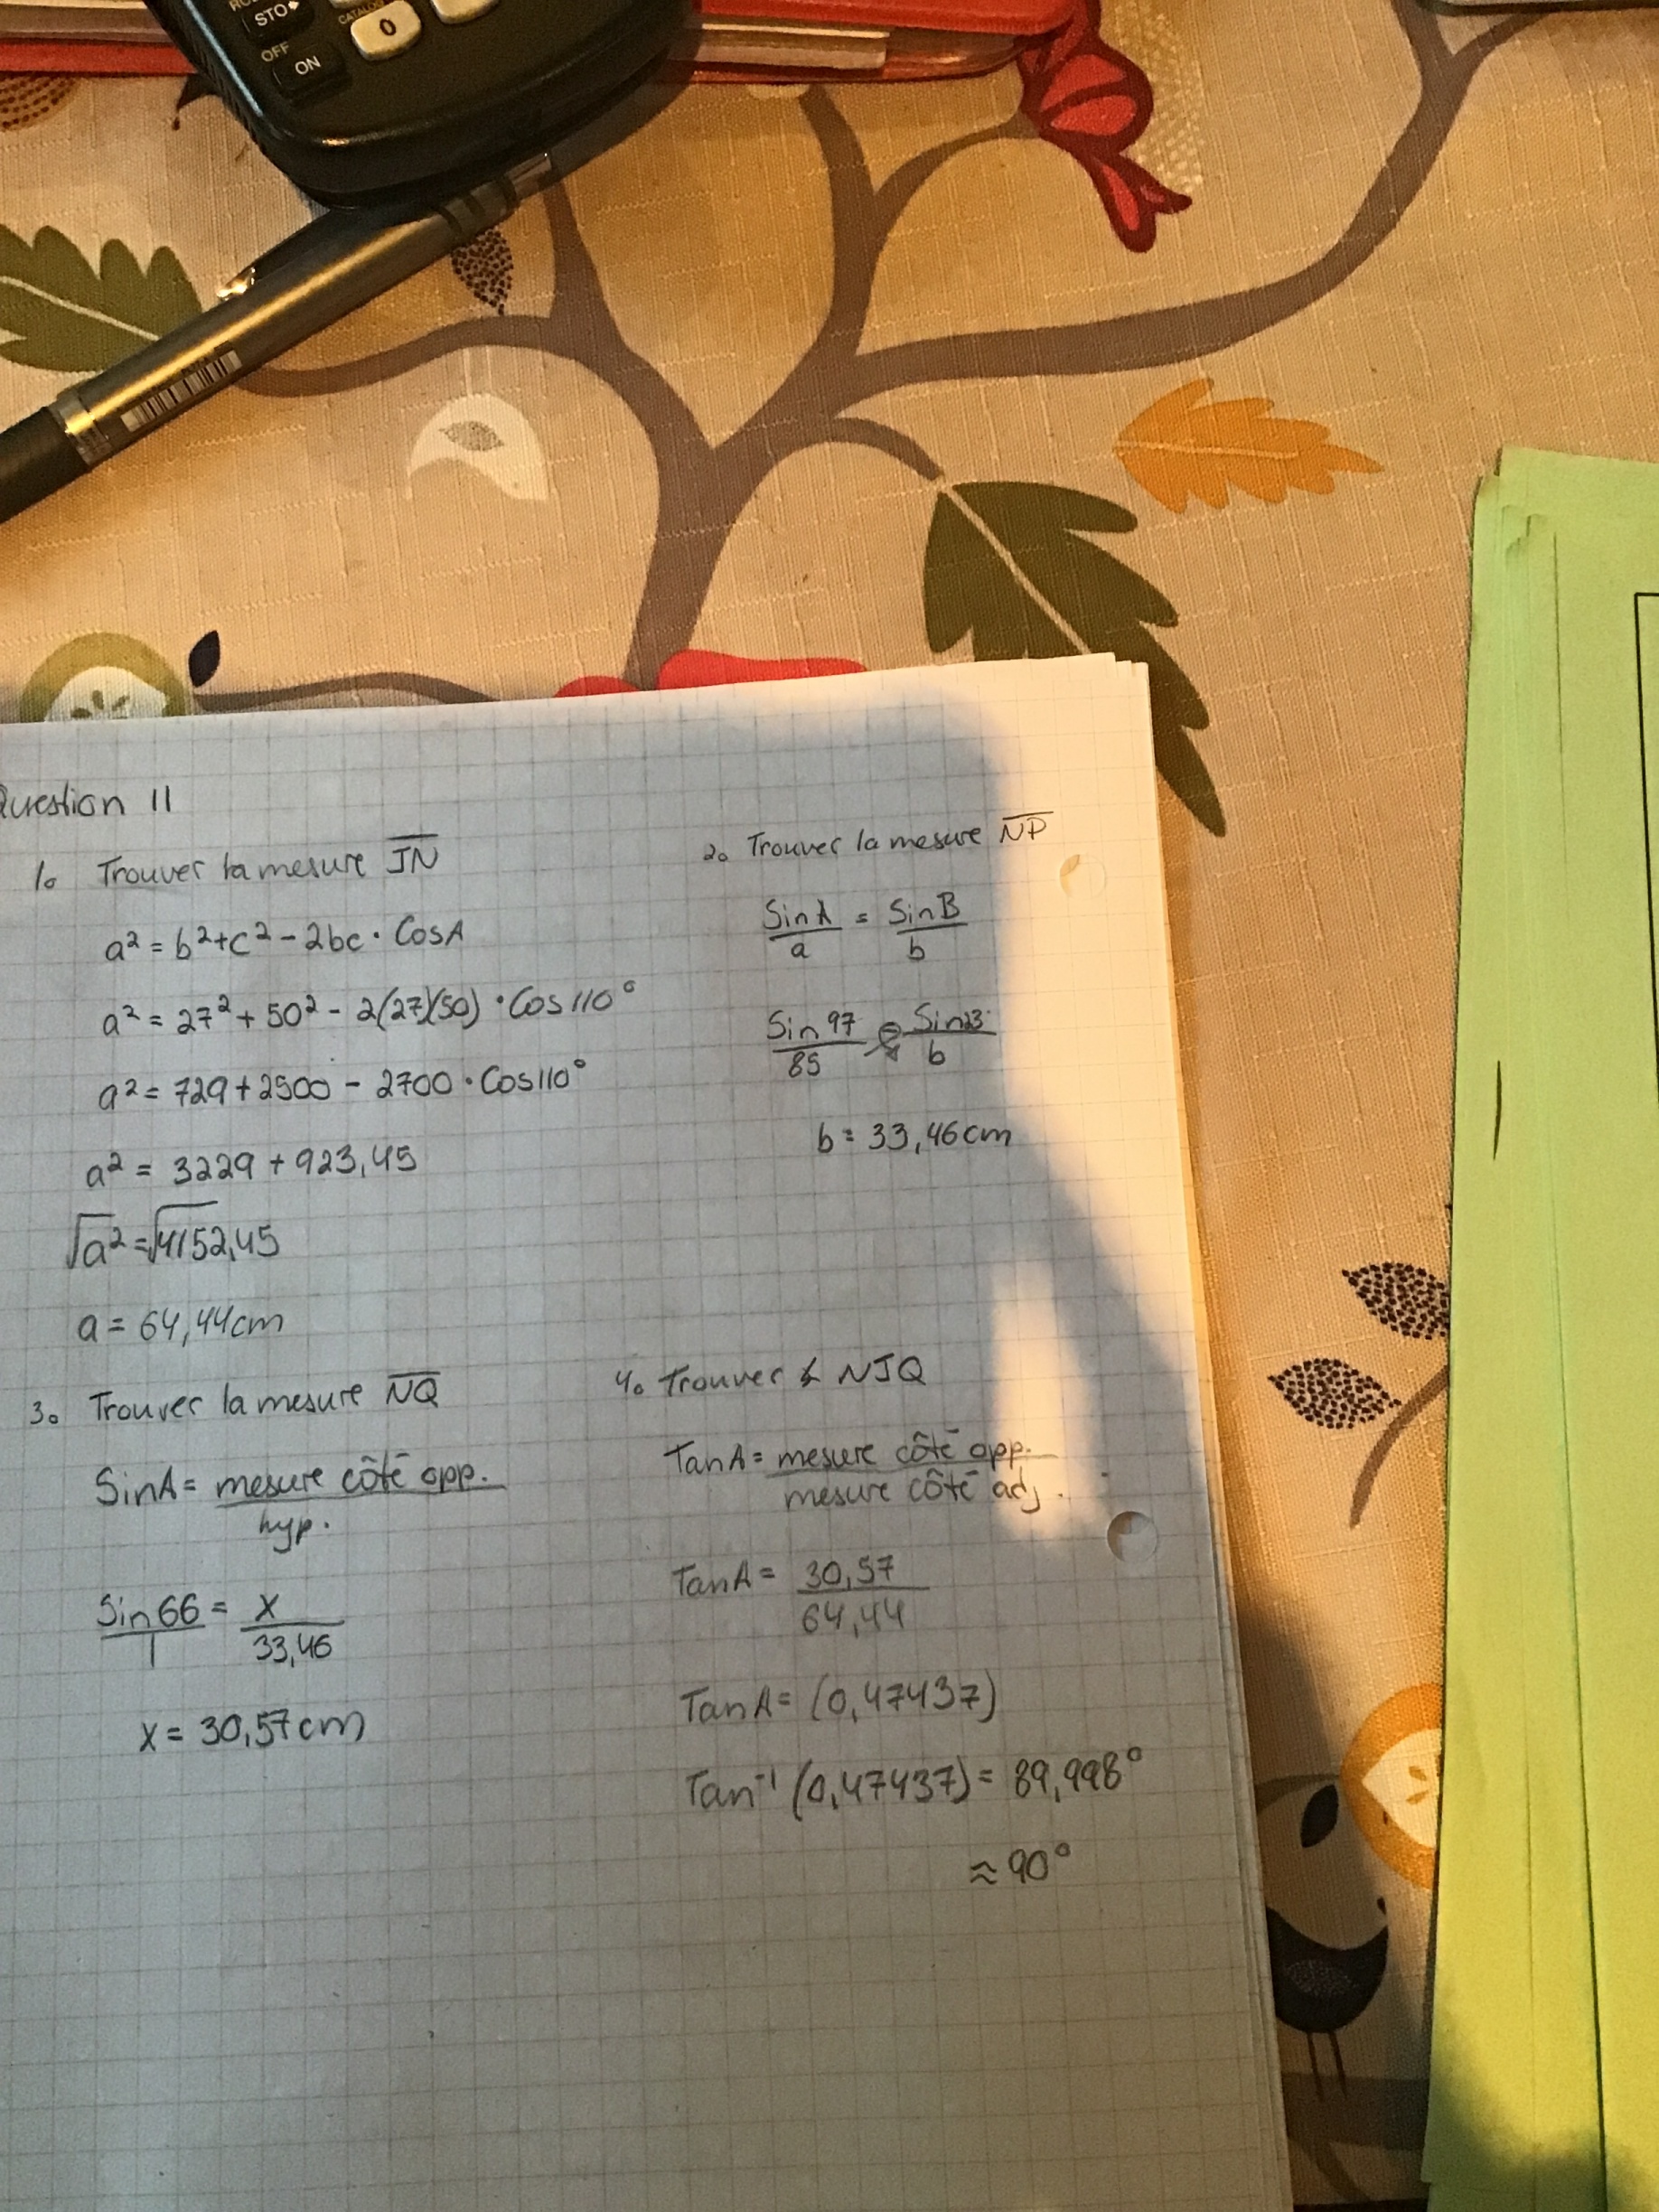 STO▸
CATALOG
0
OFF
ON
Question 11
1. Trouver la mesure J̅N̅
a² = b² + c² - 2bc · CosA
a² = 27² + 50² - 2(27)(50) · Cos110°
a² = 729 + 2500 - 2700 · Cos110°
a² = 3229 + 923,45
√a² = √4152,45
a = 64,44cm
2. Trouver la mesure N̅P̅
SinA/a = SinB/b
Sin97/85 = Sin23/b
b = 33,46cm
3. Trouver la mesure N̅Q̅
SinA = mesure côté opp.
hyp.
Sin66/1 = x/33,46
x = 30,57cm
4. Trouver ∠ NJQ
TanA = mesure côté opp.
mesure côté adj.
TanA = 30,57/64,44
TanA = (0,47437)
Tan⁻¹ (0,47437) = 89,998°
≈ 90°